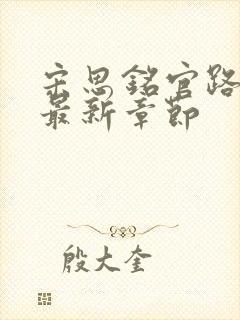 宋思铭官路
最新章节
殷大奎